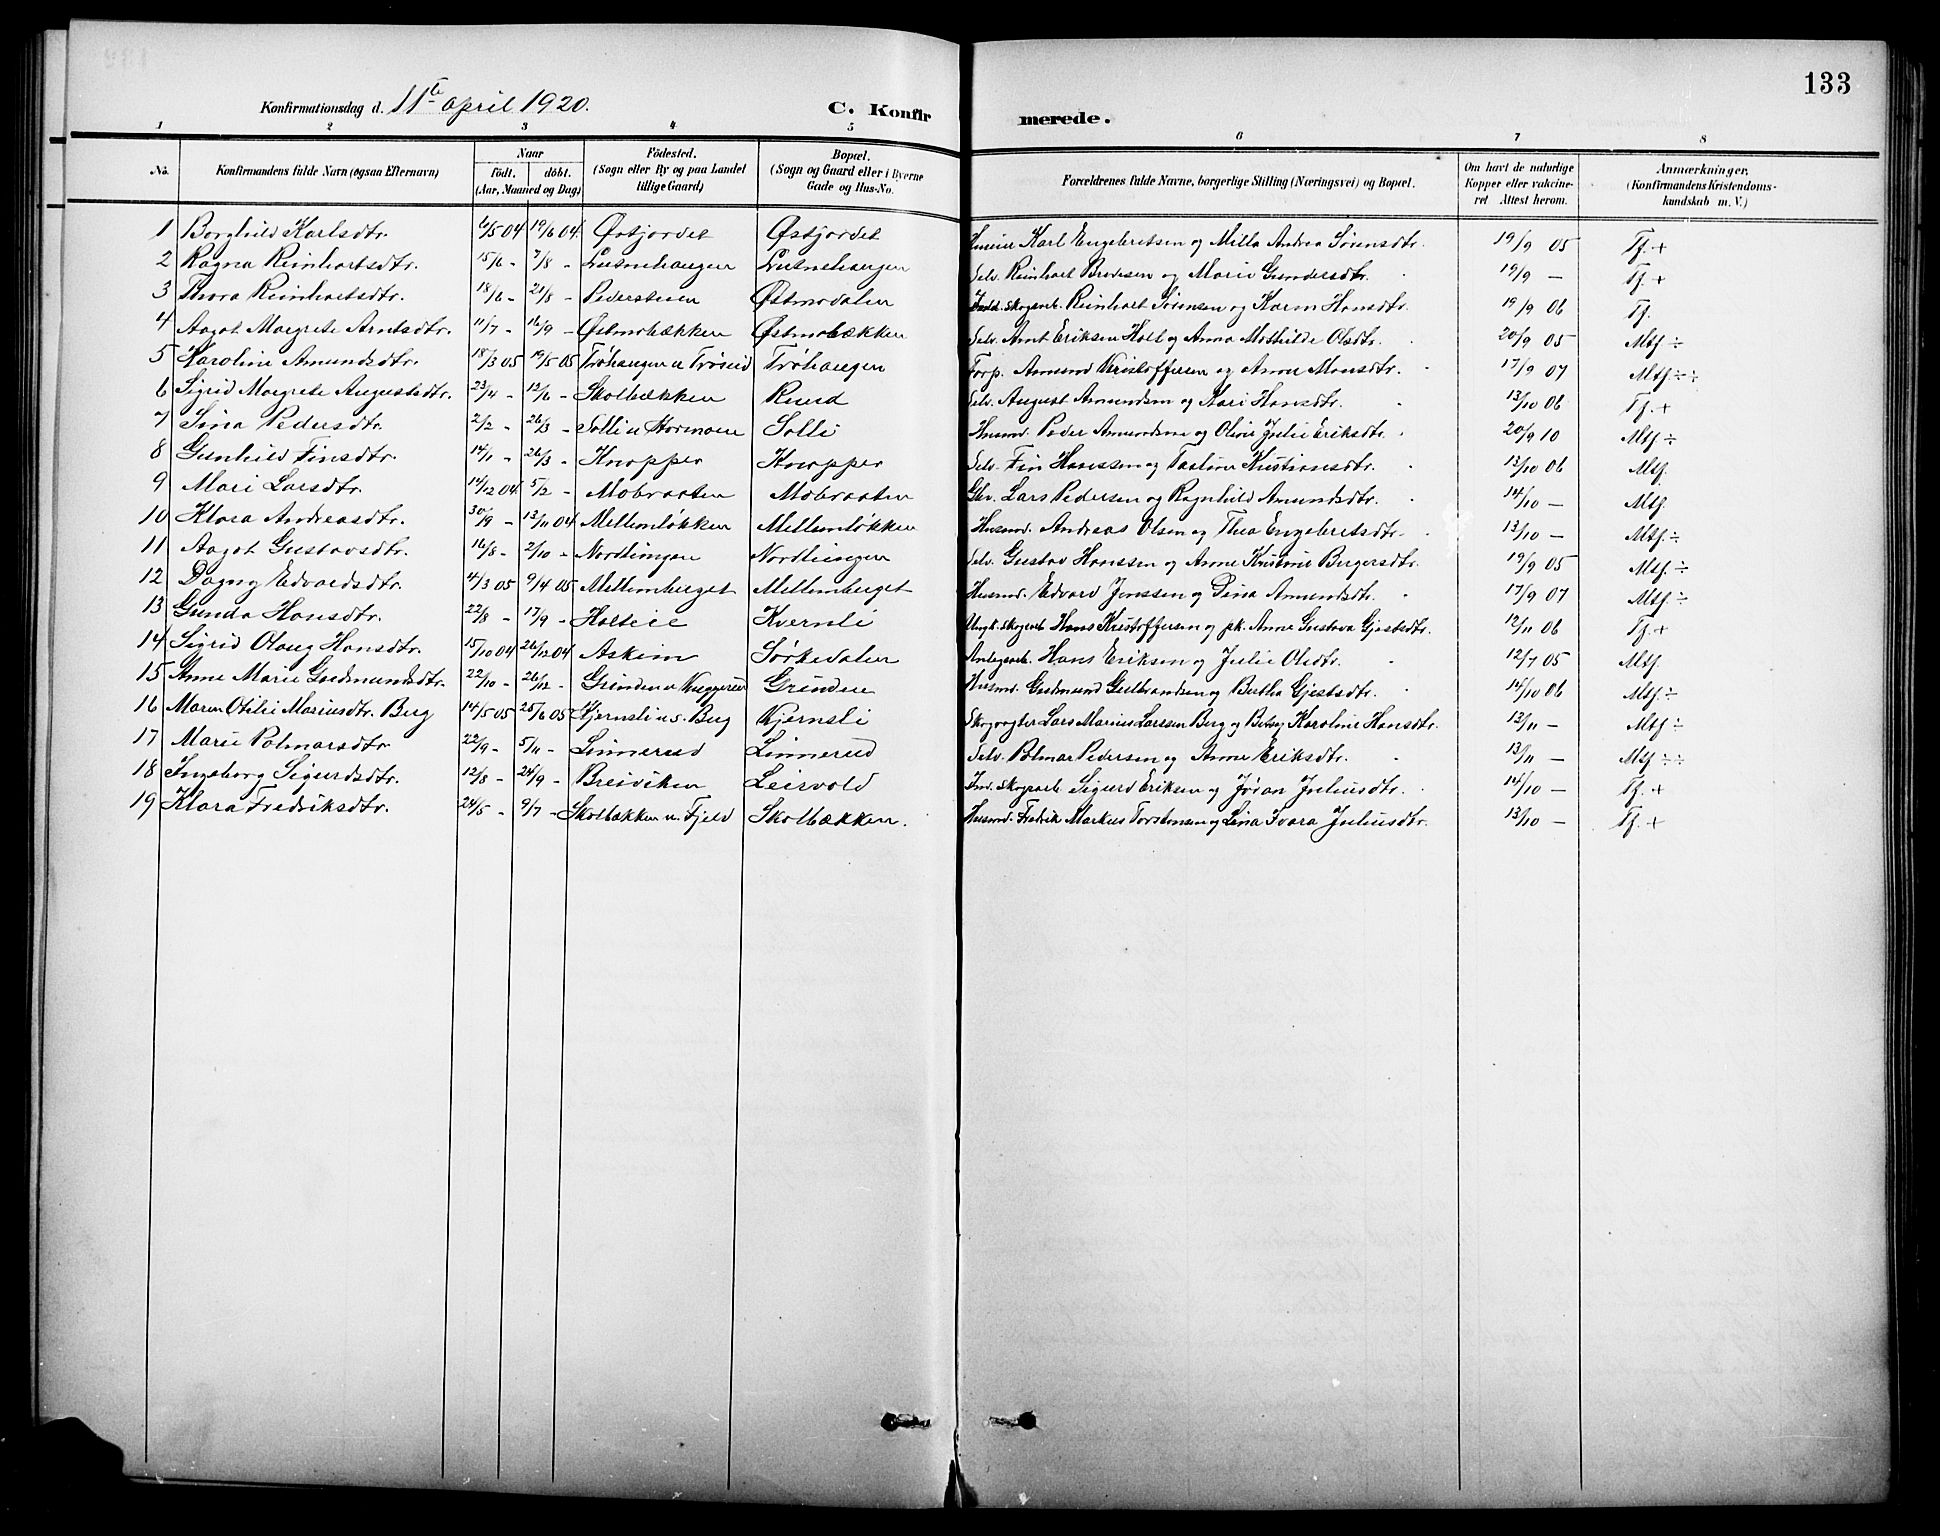 133
Konfirmationsdag d. 11te april 1920. C. Konfirmerede.
1 2 3 4 5 6 7 8
No. Konfirmandens fulde Navn (ogsaa Efternavn) Naar født. døbt. (Aar, Maaned og Dag) Fødested. (Sogn eller By og paa Landet tillige Gaard) Bopæl. (Sogn og Gaard eller i Byerne Gade og Hus-No. Forældrenes fulde Navne, borgerlige Stilling (Næringsvei) og Bopæl. Om havt de naturlige Kopper eller vakcineret Attest herom. Anmærkninger, (Konfirmandens Kristendomskundskab m. V.)
1 Borghild Karlsdtr. 6/5 04 19/6 04. Østjordet Østjordet Karl Engebretsen og Milla Andrea Sørensdtr. 19/9 05 Tf. +
2 Ragna Reinhartsdtr. 15/6 - 7/8 - Lusnehaugen Lusnehaugen Selv. Reinhart Bredesen og Marie Gundersdtr. 19/9 — Tf. +
3 Thora Reinhartsdtr. 18/6 - 21/8 - Pedersteien Østmodalen Skogarb. Reinhart Sørensen og Karen Hansdtr. 19/9 06 Tf.
4 Aagot Margrete Arntsdtr. 11/7 - 16/9 - Østmobækken Østmobækken Selv. Arnt Eriksen Holt og Anna Mathilde Olsdtr. 20/9 05 Mtf ÷
5 Karoline Amundsdtr. 18/3 05 19/5 05 Trøhaugen u. Trøseid Trøhaugen Forp. Amund Kristoffersen og Anne Monsdtr. 17/9 07 Mtf. ÷ ÷
6 Sigrid Margrete Augustsdtr. 23/4 - 12/6 - Skolbækken Ruud Selv. August Amundsen og Kari Hansdtr. 13/10 06 Tf. +
7 Sina Pedersdtr. 2/2 - 26/3 - Solli u. Hormoen Solli Husmd. Peder Amundsen og Oline Julie Eriksdtr. 20/9 10 Mtf ÷
8 Gunhild Finsdtr. 14/1 - 26/3 - Knapper Knapper Selv. Fin Hanssen og Pauline Kristiansdtr. 13/10 06 Mtf.
9 Mari Larsdtr. 14/12 04. 5/2 - Mobraaten Mobraaten Gbr. Lars Pedersen og Ragnhild Amundsdtr. 14/10 — Mtf.
10 Klara Andreasdtr. 30/9 - 13/11 04 Mellemløkken Mellemløkken Husmd. Andreas Olsen og Thea Engebretsdtr. 13/10 — Mtf. ÷
11 Aagot Gustavsdtr. 16/8 - 2/10 - Nordlingen Nordlingen Selv. Gustav Hanssen og Anne Kristine Birgersdtr. 19/9 05 Mtf. ÷
12 Dagny Edvardsdtr. 4/3 05 9/4 05 Mellemberget Mellemberget Husmd. Edvard Jenssen og Dina Amundsdtr. 17/9 07 Mtf. ÷
13 Gunda Hansdtr. 22/8 - 17/9 - Holteie Kvernsli Ungk. Skogarb. Hans Kristoffersen og pk. Anne Gustava Gjestsdtr. 12/11 06 Tf. +
14 Sigrid Olaug Hansdtr. 15/10 04 26/12 04 Askim Sørkedalen Anlegsarb. Hans Eriksen og Julie Olsdtr. 12/7 05 Mtf.
15 Anne Marie Gudmundsdtr. 22/10 - 26/12 - Grinden u. Kuggerud Grinden Husmd. Gudmund Gulbrandsen og Bertha Gjestsdtr. 14/10 06 Mtf. ÷
16 Maren Otilie Mariusdtr. Berg 14/5 05 25/6 05 Kjernsli u. s. Berg Kjernsli Skogvogter Lars Marius Larssen Berg og Betsy Karoline Hansdtr. 13/11 — Mtf. ÷
17 Marie Palmarsdtr. 22/9 - 5/11 - Linnerud Linnerud Selv. Palmar Pedersen og Anne Eriksdtr. 13/11 — Mtf. ÷ ÷
18 Ingeborg Sigurdsdtr. 12/8 - 24/9 - Breiviken Leirvold Ind. Skogarb. Sigurd Eriksen og Jøran Juliusdtr. 14/10 — Tf. +
19 Klara Fredriksdtr. 24/5 - 9/7 - Skolbækken u. Fjeld Skolbækken. Husmd. Fredrik Markus Torstensen og Lina Svara Juliusdtr. 13/10 — Tf. +